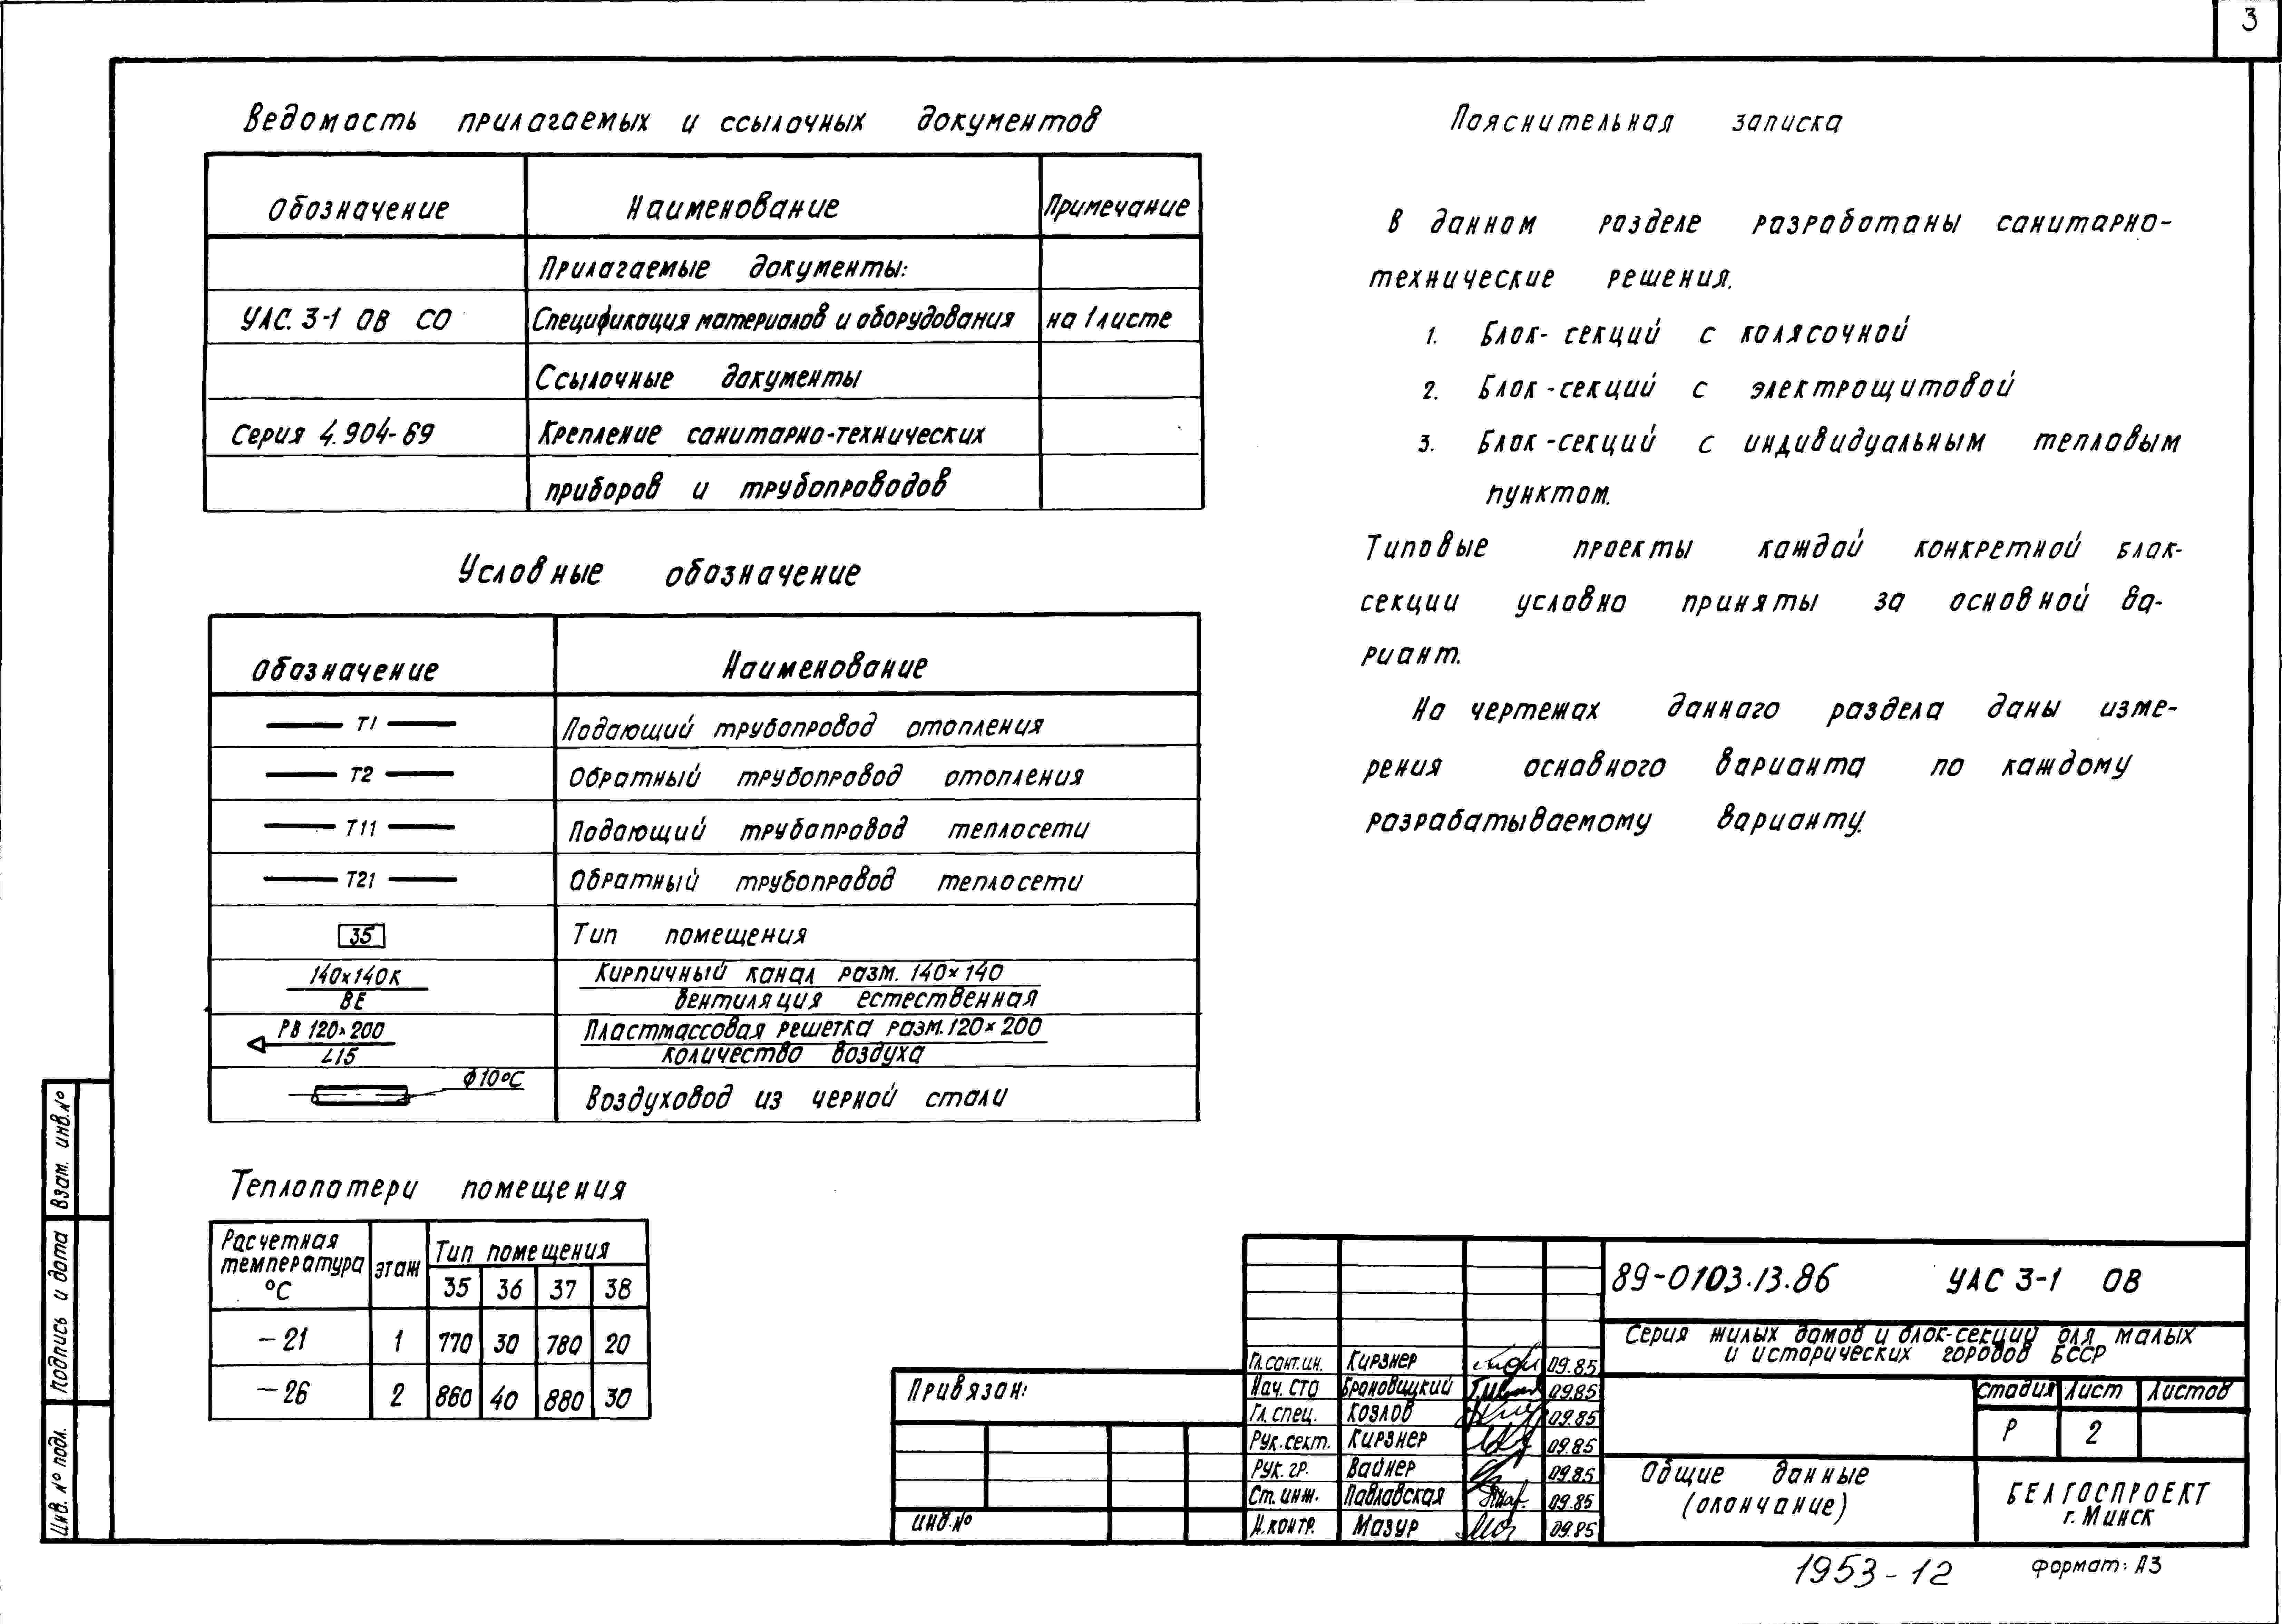 3
Ведомость прилагаемых и ссылочных документов
Обозначение Наименование Примечание
Прилагаемые документы:
УАС. 3-1 ОВ СО Спецификация материалов и оборудования на 1 листе
Ссылочные документы
Серия 4.904-69 Крепление санитарно-технических
приборов и трубопроводов
Условные обозначение
Обозначение Наименование
Т1 Подающий трубопровод отопления
Т2 Обратный трубопровод отопления
Т11 Подающий трубопровод теплосети
Т21 Обратный трубопровод теплосети
35 Тип помещения
140х140К Кирпичный канал разм. 140х140
ВЕ вентиляция естественная
РВ 120х200 Пластмассовая решетка разм. 120х200
L15 количество воздуха
ф10°С
Воздуховод из черной стали
Теплопотери помещения
Расчетная температура °С этаж Тип помещения
35 36 37 38
-21 1 770 30 780 20
-26 2 860 40 880 30
Пояснительная записка
В данном разделе разработаны санитарно-
технические решения.
1. Блок-секций с колясочной
2. Блок-секций с электрощитовой
3. Блок-секций с индивидуальным тепловым
пунктом.
Типовые проекты каждой конкретной блок-
секции условно приняты за основной ва-
риант.
На чертежах данного раздела даны изме-
рения основного варианта по каждому
разрабатываемому варианту.
Взам. инв.№
подпись и дата
Инв. № подл.
Привязан:
инв.№
Гл.сант.ин. Кирзнер 09.85
Нач. СТО Брановицкий 09.85
Гл. спец. Козлов 09.85
Рук.сект. Кирзнер 09.85
Рук. гр. Вайнер 09.85
Ст. инж. Павловская 09.85
Н.контр. Мазур 09.85
89-0103.13.86 УАС 3-1 ОВ
Серия жилых домов и блок-секций для малых
и исторических городов БССР
Стадия Лист Листов
Р 2
Общие данные
(окончание)
БЕЛГОСПРОЕКТ
г. Минск
1953-12
формат: А3